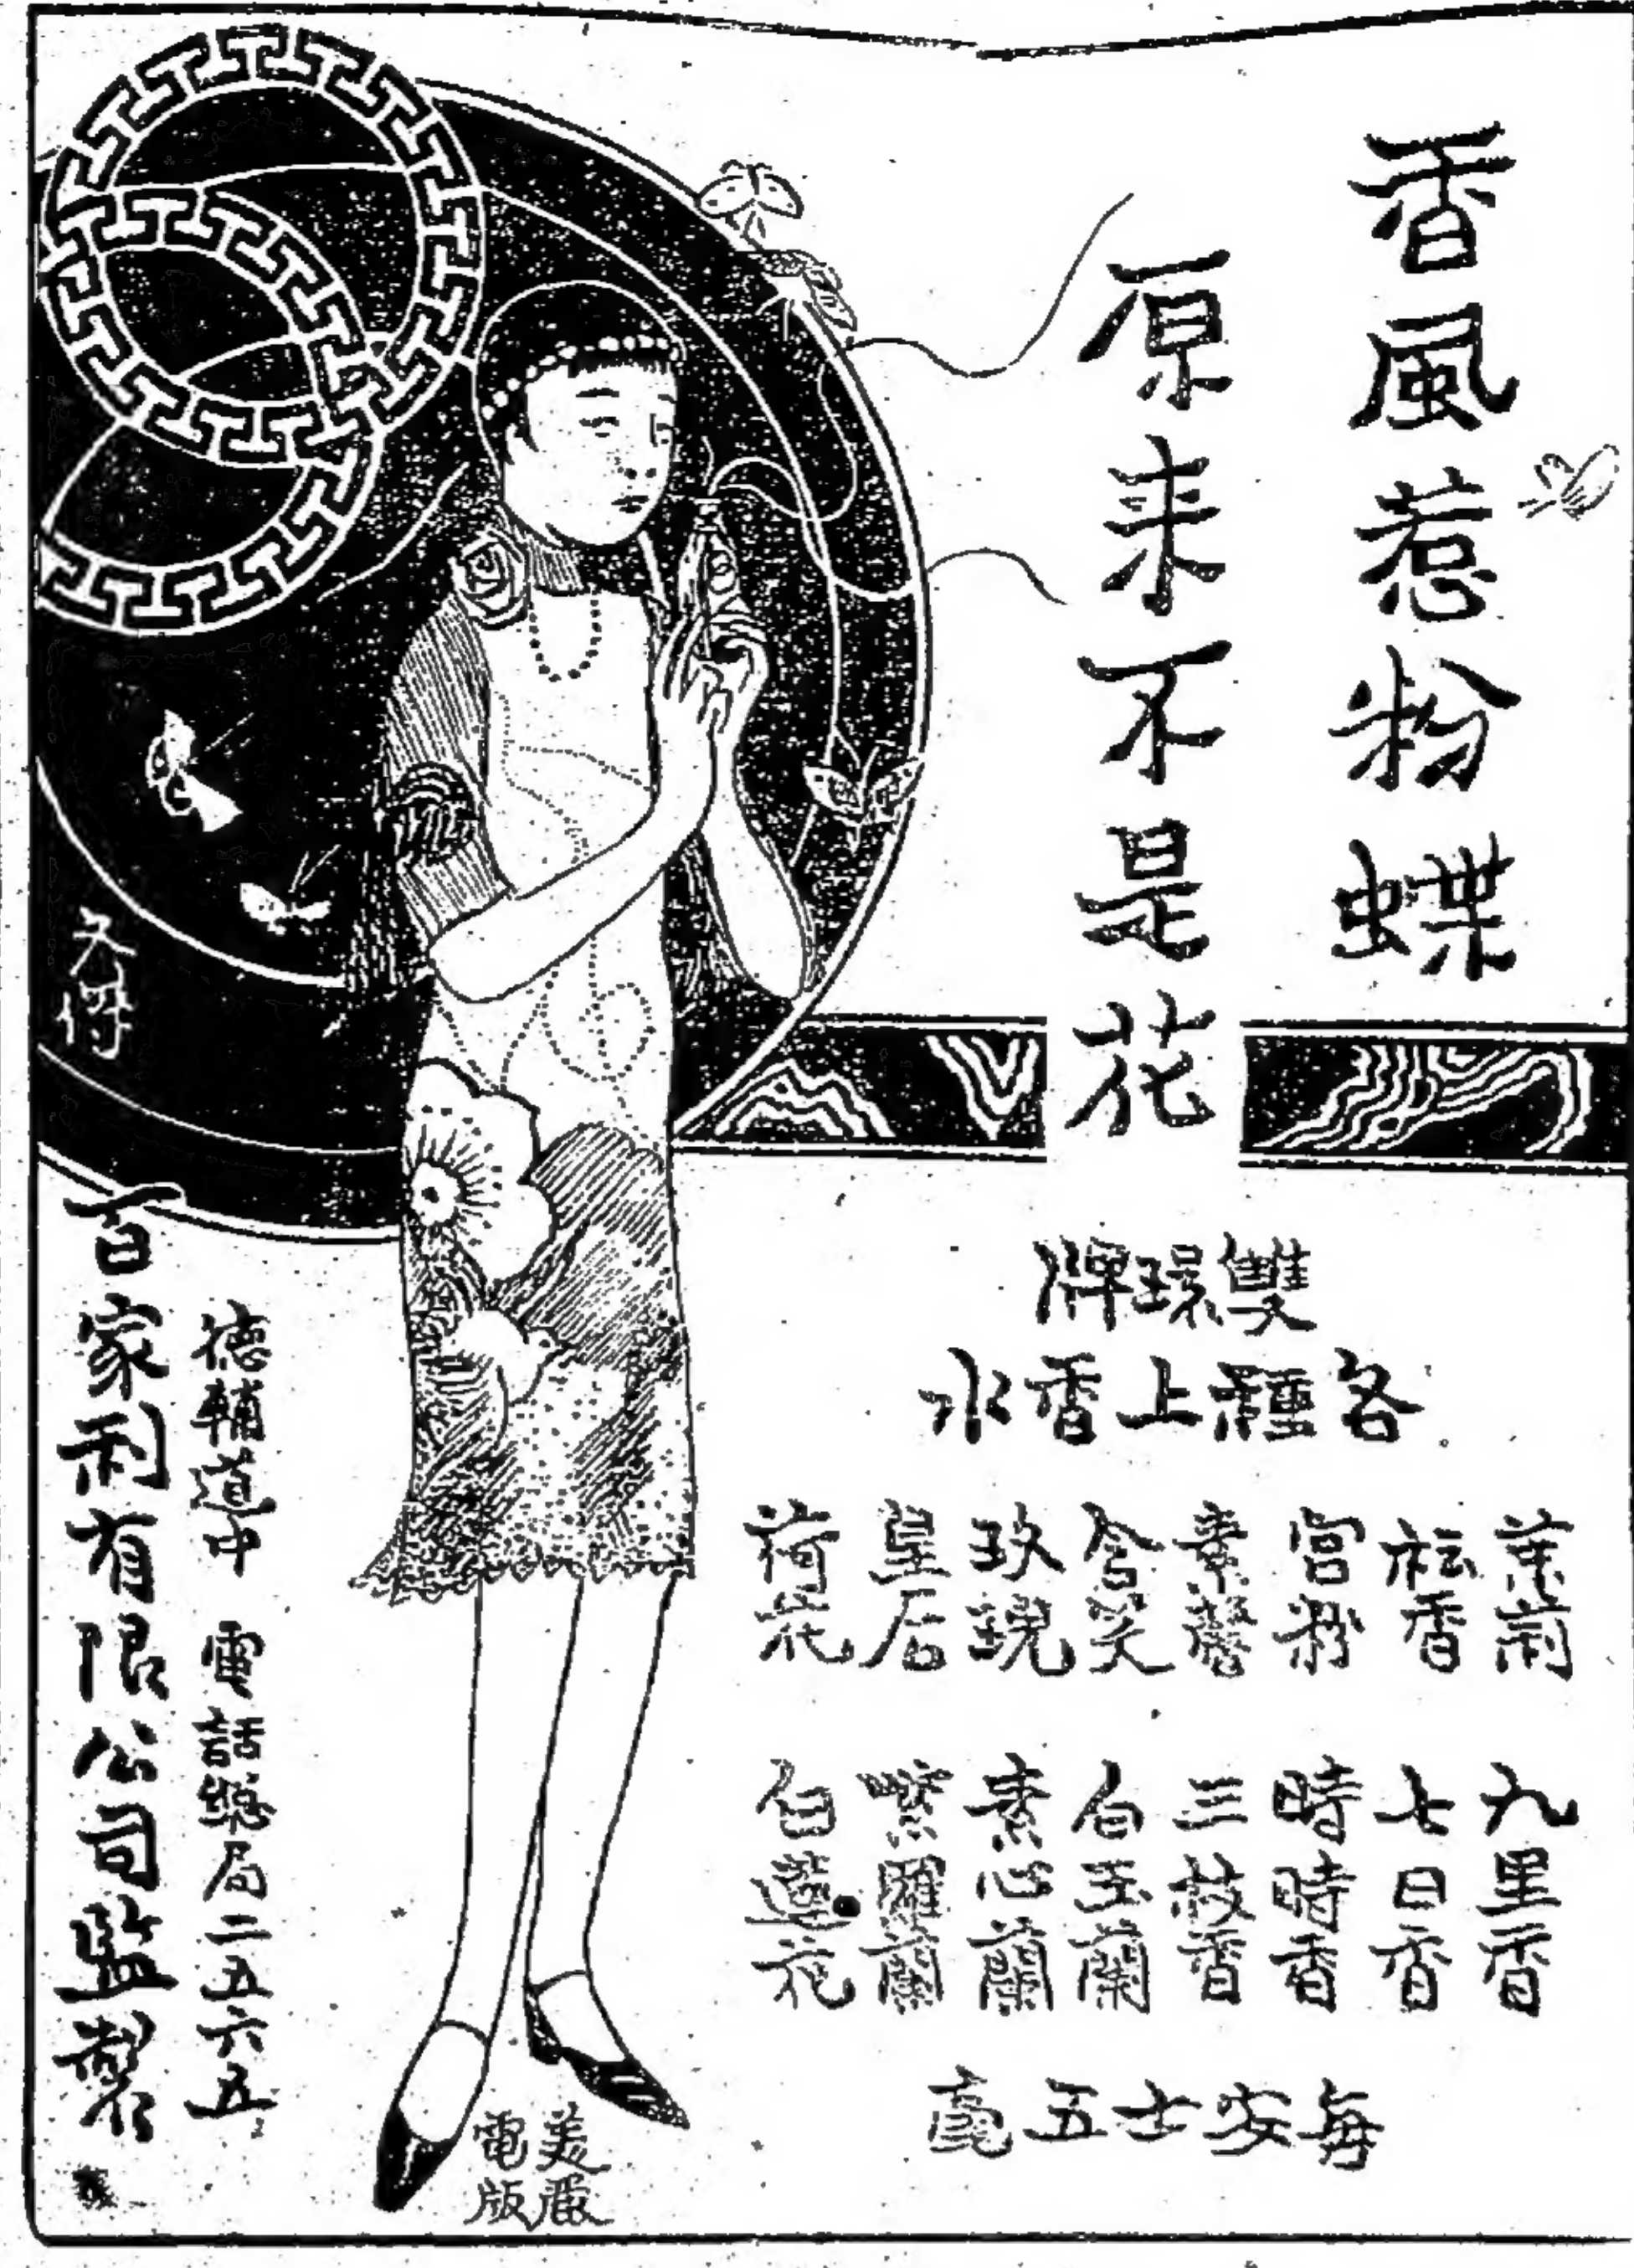 香風惹粉蝶
原来不是花
雙環牌
各種上香水
茉莉
松香
宮粉
素馨
含笑
玫瑰
皇后
荷花
九里香
七日香
時時香
三枝香
白玉蘭
素心蘭
紫羅蘭
白蓮花
每安士五毫
德輔道中 電話總局二五六五
百家利有限公司監製
美嚴
電版